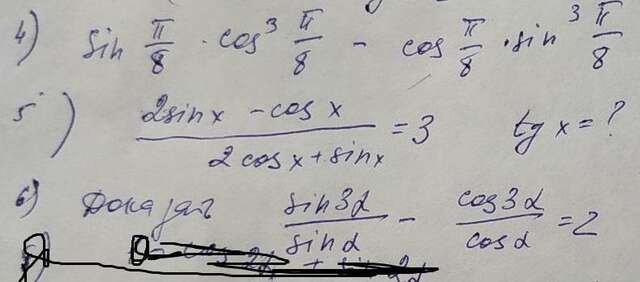 4) sin π/8 · cos³ π/8 − cos π/8 · sin³ π/8
5) (2sinx − cosx)/(2cosx + sinx) = 3 tgx = ?
6) Доказать sin3α/sinα − cos3α/cosα = 2